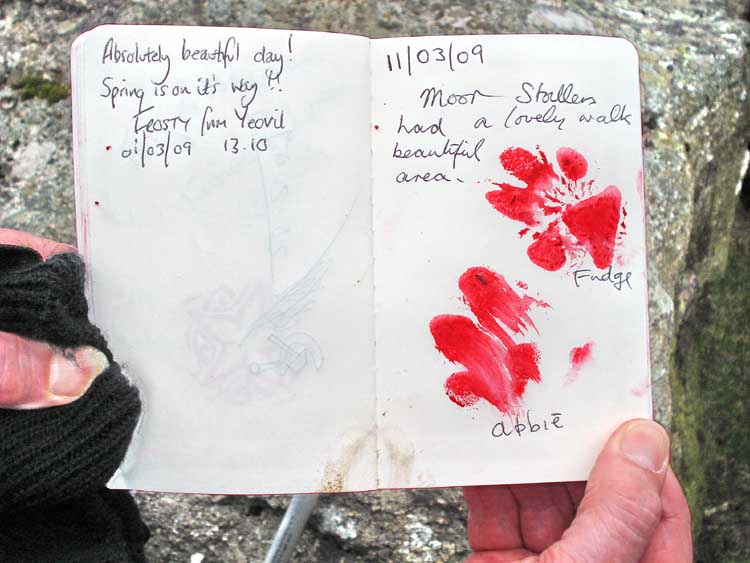 Absolutely beautiful day!
Spring is on it's way!!
from Yeovil
01/03/09 13.10
11/03/09
Moor Strollers
had a lovely walk
beautiful
area.
Fudge
abbie